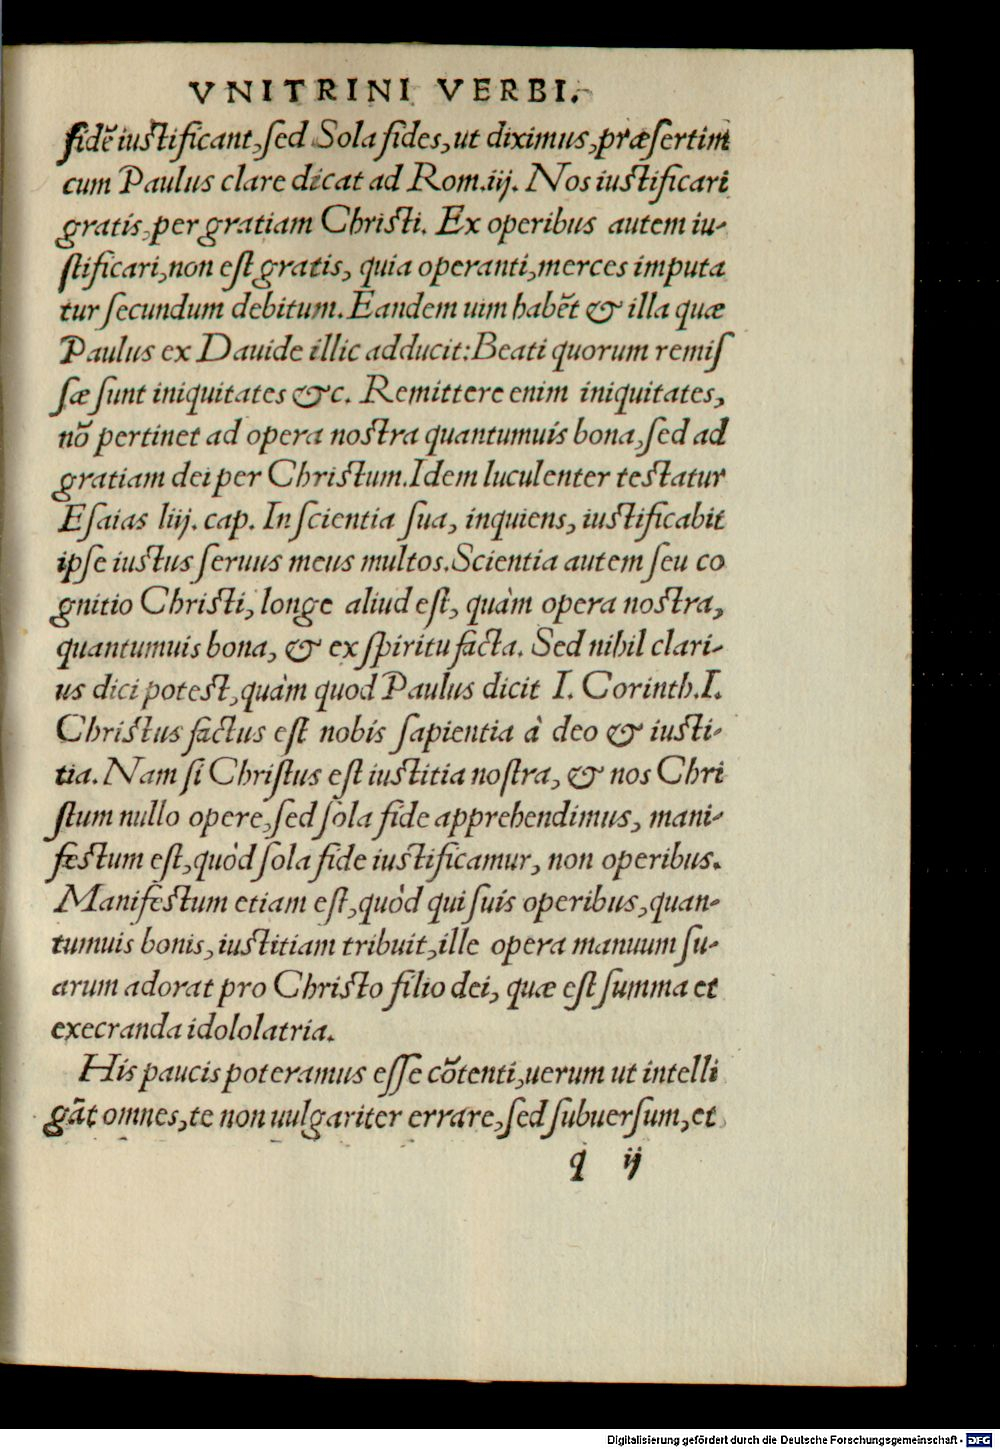 VNITRINI VERBI.
fidē iustificant, sed Sola fides, ut diximus, præsertim
cum Paulus clare dicat ad Rom.iij. Nos iustificari
gratis, per gratiam Christi. Ex operibus autem iu-
stificari, non est gratis, quia operanti, merces imputa
tur secundum debitum. Eandem uim habēt & illa quæ
Paulus ex Dauide illic adducit: Beati quorum remis
sæ sunt iniquitates &c. Remittere enim iniquitates,
nō pertinet ad opera nostra quantumuis bona, sed ad
gratiam dei per Christum. Idem luculenter testatur
Esaias liij. cap. In scientia sua, inquiens, iustificabit
ipse iustus seruus meus multos. Scientia autem seu co
gnitio Christi, longe aliud est, quàm opera nostra,
quantumuis bona, & ex spiritu facta. Sed nihil clari-
us dici potest, quàm quod Paulus dicit I. Corinth.I.
Christus factus est nobis sapientia à deo & iusti-
tia. Nam si Christus est iustitia nostra, & nos Chri
stum nullo opere, sed sola fide apprehendimus, mani-
festum est, quòd sola fide iustificamur, non operibus.
Manifestum etiam est, quòd qui suis operibus, quan-
tumuis bonis, iustitiam tribuit, ille opera manuum su-
arum adorat pro Christo filio dei, quæ est summa et
execranda idololatria.
His paucis poteramus esse cōtenti, uerum ut intelli
gāt omnes, te non uulgariter errare, sed subuersum, et
q ij
Digitalisierung gefördert durch die Deutsche Forschungsgemeinschaft - DFG